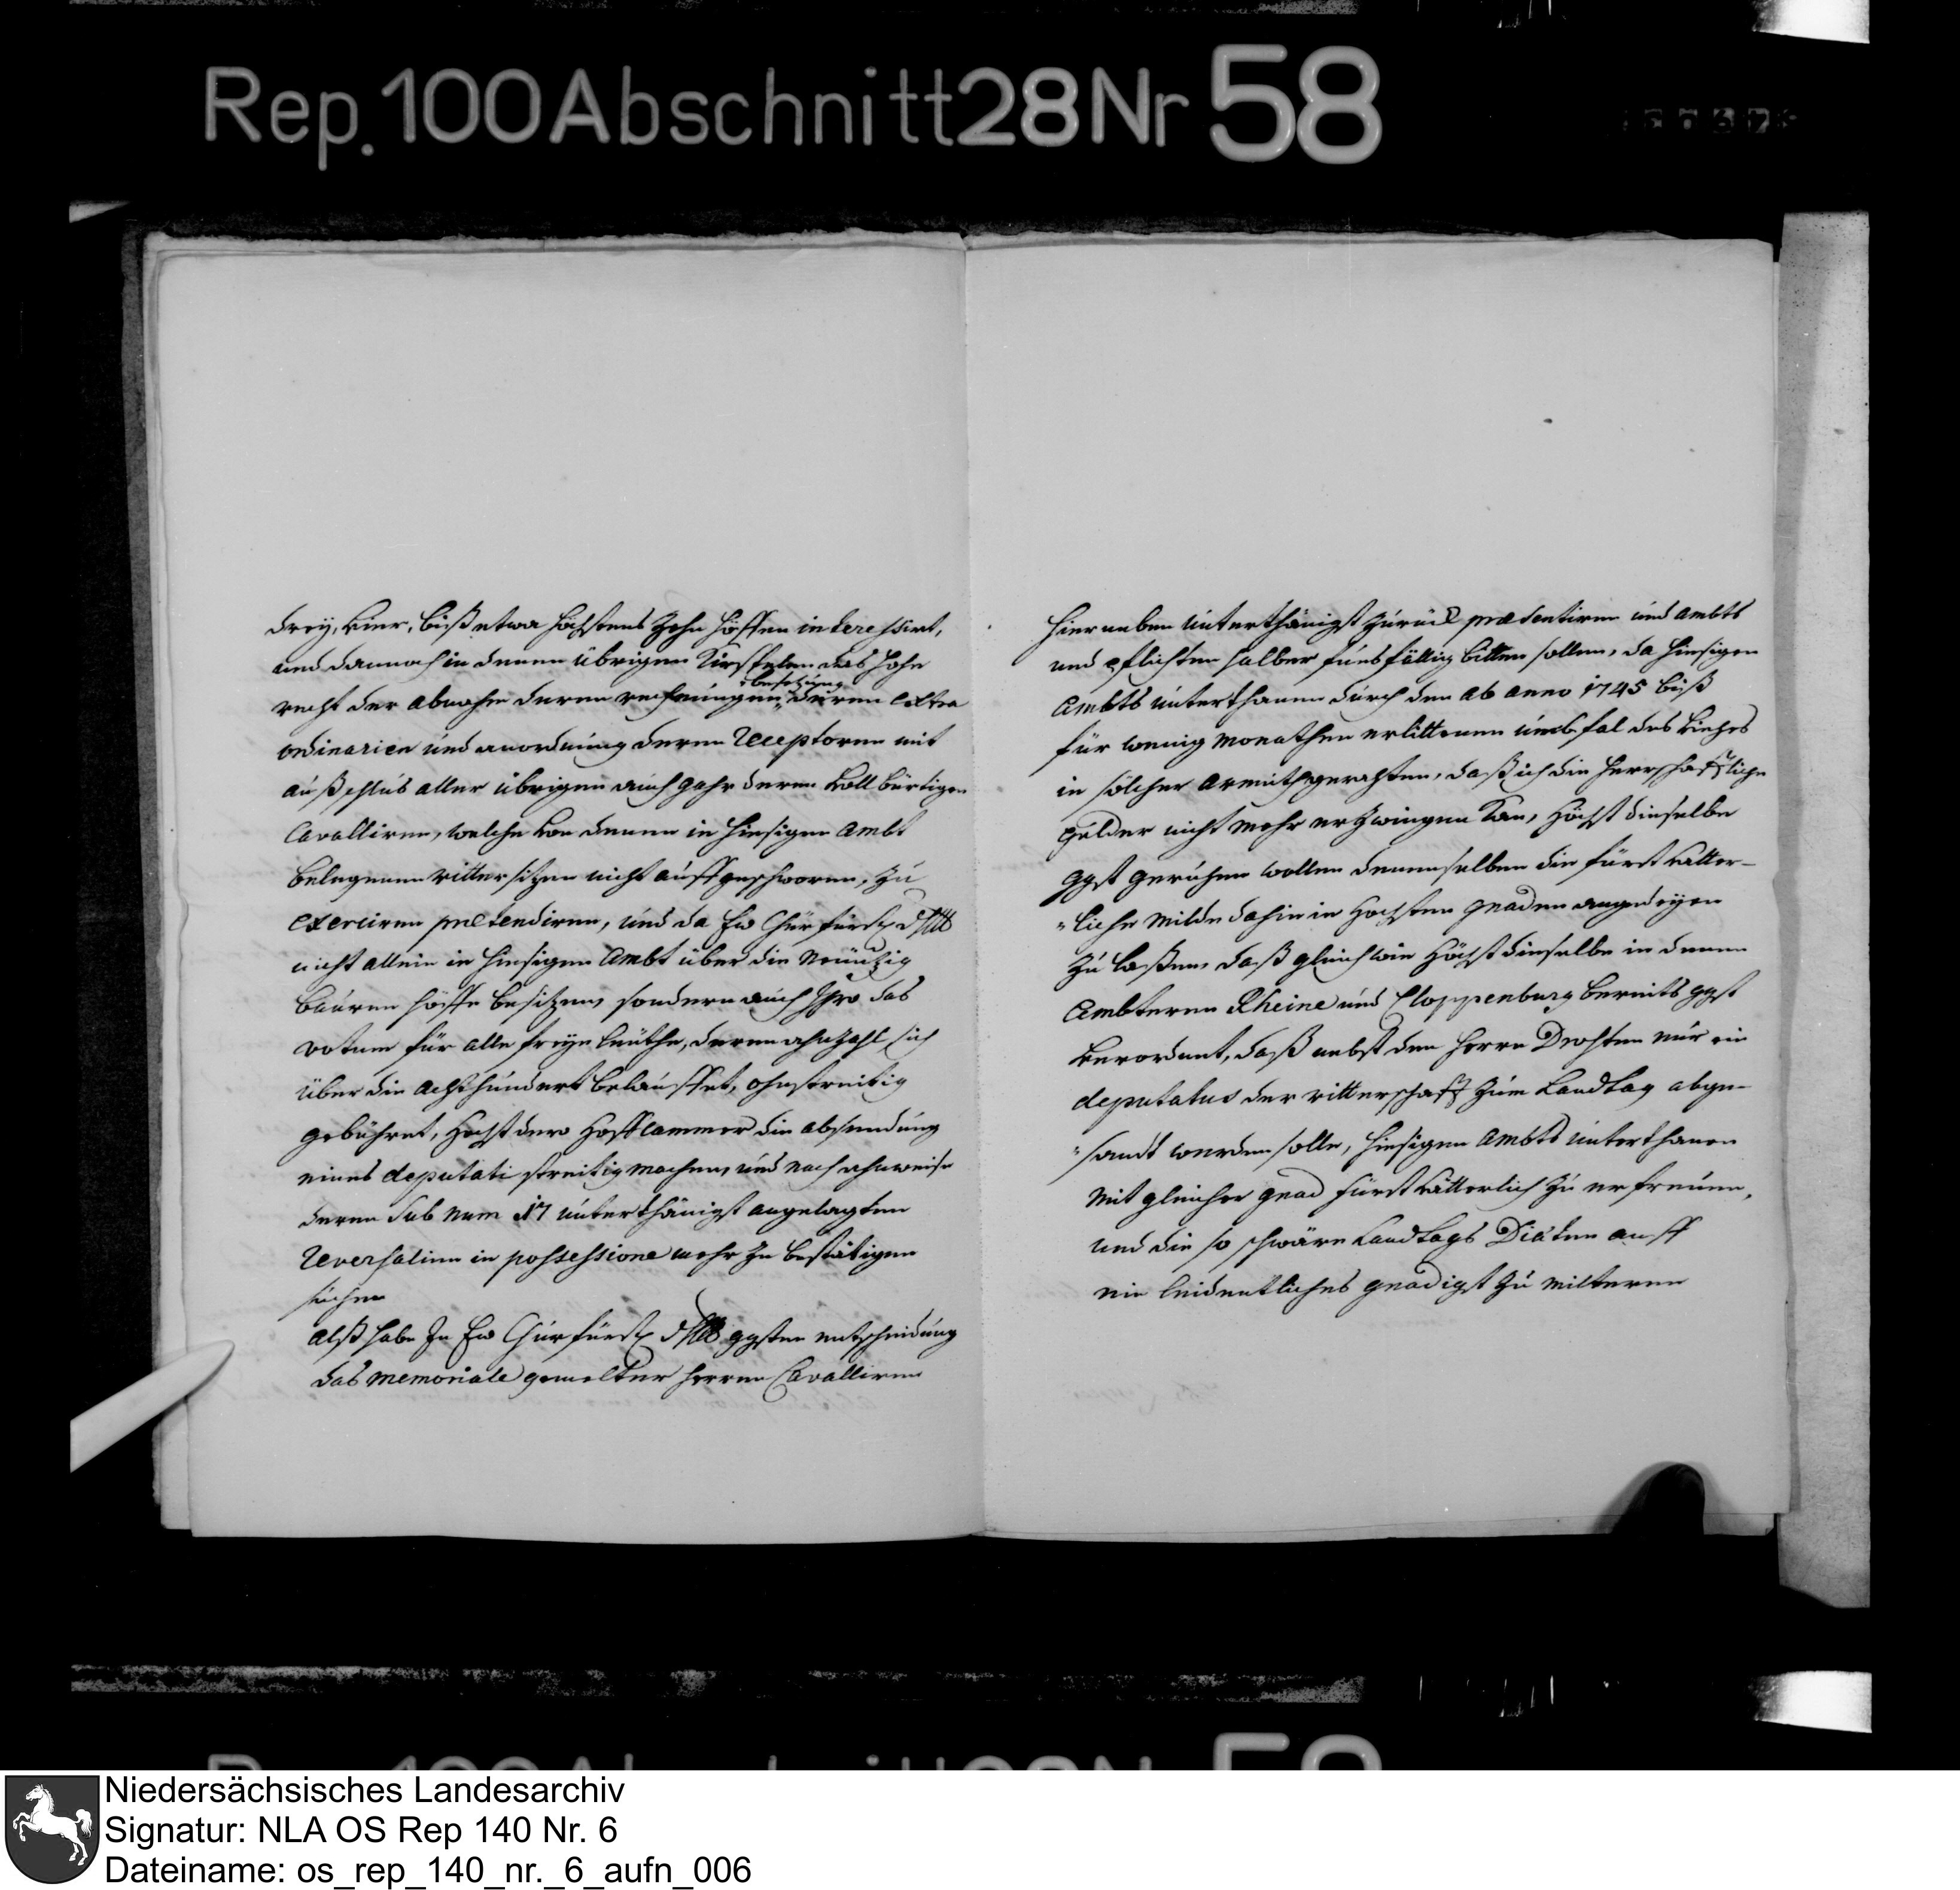 Rep. 100 Abschnitt 28 Nr 58
drey, vier, biß etwa höchstens Zehn höffen interessirt,
und dannoch in denen übrigen Kirspelen das hohe
besetzung
recht der abnahm deren rechnungen, deren extra
ordinarien und anordnung deren Receptoren mit
außschlus aller übrigen auch gahr deren Voll bürtigen
Cavalliren, welche von denen in hiesigen Ambt
belegenen rittersitzen nicht auffgeschworen, zu
exerciren prætendiren, und da Ew Churfürstl dhlt
nicht allein in hiesigen Ambt über die Neuntzig
Bauren höffe besitzen, sondern auch Ihro das
votum für alle freye leuthe, deren ahnzahl sich
über die Achthundert belauffet, ohnstreitig
gebühret, Höchst dero Hoffcammer die absendung
eines deputati streitig machen, und nach ahnweise
deren sub num 17 unterthänigst angelagten
Reversalien in possessione mehr zu bestätigen
suchen
Alß habe Zu Ew Churfürstl dhlt ggsten entscheidung
das memoriale gemelter herren Cavalliren
hierneben unterthänigst zurück præsentiren und ambts
und pflichten halber fuesfällig bitten sollen, da hiesigen
Ambts unterthanen durch den ab anno 1745 biß
für wenig Monathen erlittenen umbfal des Viehes
in solcher armuth gerahten, daß ich die herrschafftliche
gelder nicht mehr erzwingen kan, Höchst dieselbe
ggst geruhen wollen denenselben die fürstvatter-
"liche Milde dahin in Hochsten gnaden angedeyen
Zu laßen, daß gleichwie Höchst dieselbe in denen
Ambteren Rheine und Cloppenburg bereits ggst
verordnet, daß nebst den Herrn Drosten nur ein
deputatus der ritterschafft zum LandTag abge-
"sandt werden solle, hiesigen Ambts unterthanen
Mit gleicher gnad fürstvätterlich zu erfreuen,
und die so schwäre Landtags Diäten auff
ein leidentliches gnädigst zu milteren
Niedersächsisches Landesarchiv
Signatur: NLA OS Rep 140 Nr. 6
Dateiname: os_rep_140_nr._6_aufn_006